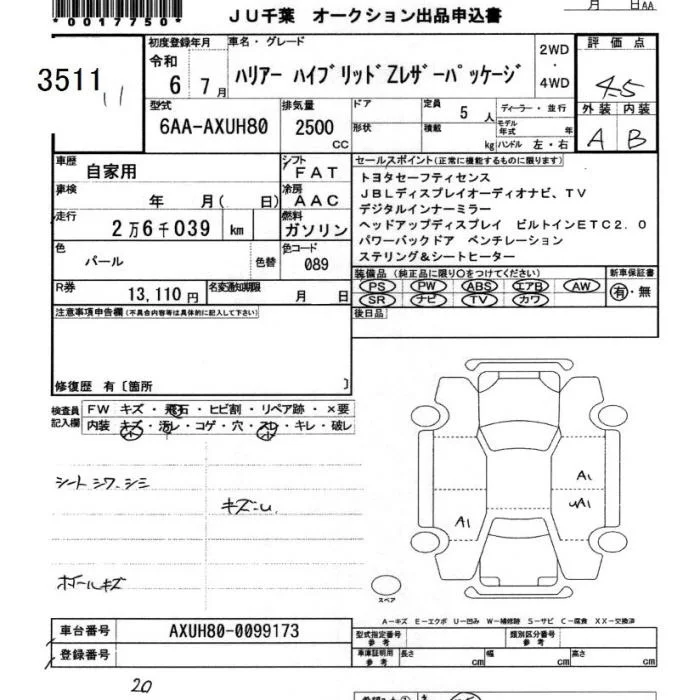 *0017750*
月 日AA
JU千葉 オークション出品申込書
3511
11
初度登録年月
令和
6 7月
車名・グレード
ハリアー ハイブリッドZレザーパッケージ
2WD
・
4WD
評価点
4.5
外装 内装
A B
型式
6AA-AXUH80
排気量
2500
CC
ドア
形状
定員
5 人
積載
kg
ディーラー・並行
モデル年式 年
ハンドル 左・右
車歴
自家用
シフト
FAT
車検
年 月( 日)
冷房
AAC
走行
2万6千039 km
燃料
ガソリン
色
パール
色替
色コード
089
R券
13,110円
名変通知期限
月 日
セールスポイント(正常に機能するものに限ります)
トヨタセーフティセンス
JBLディスプレイオーディオナビ、TV
デジタルインナーミラー
ヘッドアップディスプレイ ビルトインETC2.0
パワーバックドア ベンチレーション
ステリング&シートヒーター
装備品 (純正品に限り○をつけてください)
PS PW ABS エアB AW
SR ナビ TV カワ
新車保証書
有・無
後日品
注意事項申告欄(不具合内容等は具体的に記入して下さい)
修復歴 有〔箇所 〕
検査員
記入欄
FW キズ・飛石・ヒビ割・リペア跡・×要
内装 キズ・汚レ・コゲ・穴・スレ・キレ・破レ
シート シワ、シミ
キズ
キズ
A1
uA1
A1
スペア
A-キズ E-エクボ U-凹み W-補修跡 S-サビ C-腐食 XX-交換済
車台番号
AXUH80-0099173
登録番号
型式指定番号
参考
類別区分番号
参考
車庫証明用
参考
長さ cm 幅 cm 高さ cm
20